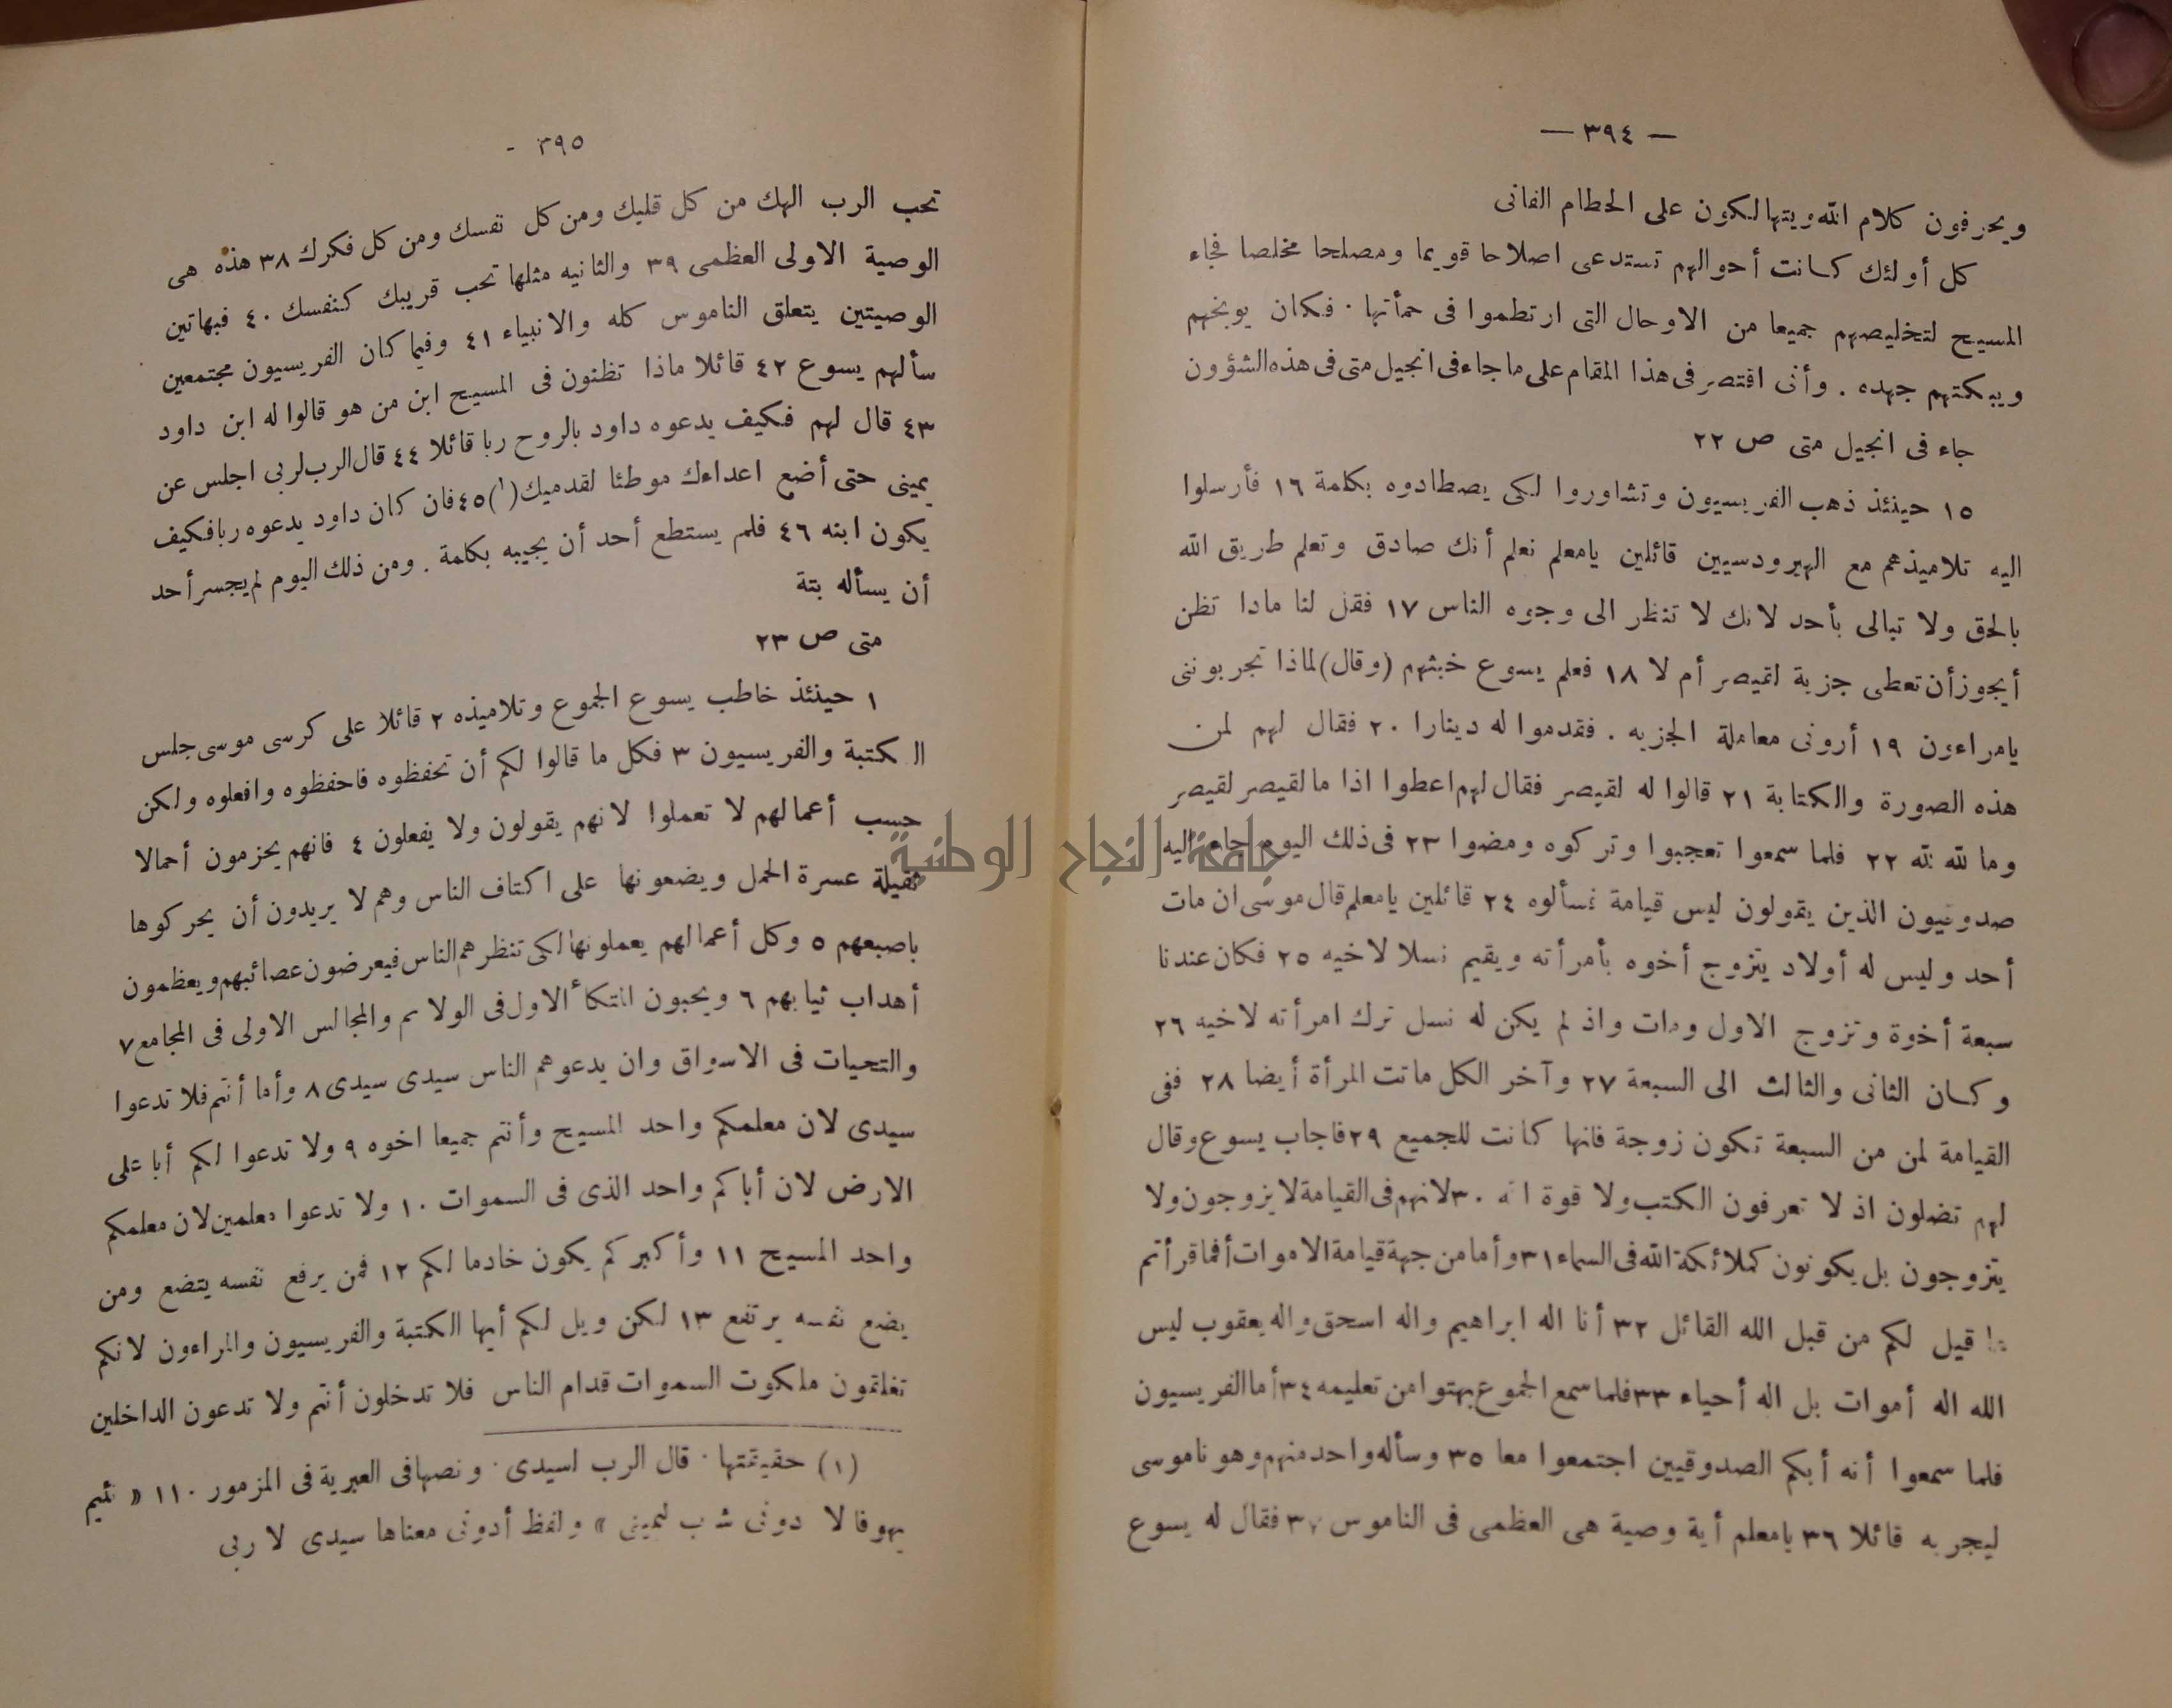 — ٣٩٤ —
ويحرفون كلام الله ويتهالكون على الحطام الفانى
كل أولئك كانت أحوالهم تستدعى اصلاحا قويما ومصلحا مخلصا فجاء
المسيح لتخليصهم جميعا من الاوحال التى ارتطموا فى حمأتها . فكان يوبخهم
ويبكتهم جهده . وأنى اقتصر فى هذا المقام على ما جاء فى انجيل متى فى هذه الشؤون
جاء فى انجيل متى ص ٢٢
١٥ حينئذ ذهب الفريسيون وتشاوروا لكى يصطادوه بكلمة ١٦ فأرسلوا
اليه تلاميذهم مع الهيرودسيين قائلين يامعلم نعلم أنك صادق وتعلم طريق الله
بالحق ولا تبالى بأحد لانك لا تنظر الى وجوه الناس ١٧ فقل لنا مادا تظن
أيجوز أن تعطى جزية لقيصر أم لا ١٨ فعلم يسوع خبثهم (وقال) لماذا تجربوننى
يامراءون ١٩ أرونى معاملة الجزيه . فقدموا له دينارا ٢٠ فقال لهم لمن
هذه الصورة والكتابة ٢١ قالوا له لقيصر فقال لهم اعطوا اذا ما لقيصر لقيصر
وما لله لله ٢٢ فلما سمعوا تعجبوا وتركوه ومضوا ٢٣ فى ذلك اليوم جاء اليه
صدوقيون الذين يقولون ليس قيامة فسألوه ٢٤ قائلين يامعلم قال موسى ان مات
أحد وليس له أولاد يتزوج أخوه بأمرأته ويقيم نسلا لاخيه ٢٥ فكان عندنا
سبعة أخوة وتزوج الاول ومات واذ لم يكن له نسل ترك امرأته لاخيه ٢٦
وكان الثانى والثالث الى السبعة ٢٧ وآخر الكل ماتت المرأة أيضا ٢٨ ففى
القيامة لمن من السبعة تكون زوجة فانها كانت للجميع ٢٩ فاجاب يسوع وقال
لهم تضلون اذ لا تعرفون الكتب ولا قوة الله ٣٠ لانهم فى القيامة لا يزوجون ولا
يتزوجون بل يكونون كملائكة الله فى السماء ٣١ وأما من جهة قيامة الاموات أفما قرأتم
ما قيل لكم من قبل الله القائل ٣٢ أنا اله ابراهيم واله اسحق واله يعقوب ليس
الله اله أموات بل اله أحياء ٣٣ فلما سمع الجموع بهتوا من تعليمه ٣٤ أما الفريسيون
فلما سمعوا أنه أبكم الصدوقيين اجتمعوا معا ٣٥ وسأله واحد منهم وهو ناموسى
ليجربه قائلا ٣٦ يامعلم أية وصية هى العظمى فى الناموس ٣٧ فقال له يسوع
٣٩٥ -
تحب الرب الهك من كل قلبك ومن كل نفسك ومن كل فكرك ٣٨ هذه هى
الوصية الاولى العظمى ٣٩ والثانيه مثلها تحب قريبك كنفسك ٤٠ فبهاتين
الوصيتين يتعلق الناموس كله والانبياء ٤١ وفيما كان الفريسيون مجتمعين
سألهم يسوع ٤٢ قائلا ماذا تظنون فى المسيح ابن من هو قالوا له ابن داود
٤٣ قال لهم فكيف يدعوه داود بالروح ربا قائلا ٤٤ قال الرب لربى اجلس عن
يمينى حتى أضع اعداءك موطئا لقدميك (١) ٤٥ فان كان داود يدعوه ربا فكيف
يكون ابنه ٤٦ فلم يستطع أحد أن يجيبه بكلمة . ومن ذلك اليوم لم يجسر أحد
أن يسأله بتة
متى ص ٢٣
١ حينئذ خاطب يسوع الجموع وتلاميذه ٢ قائلا على كرسى موسى جلس
الكتبة والفريسيون ٣ فكل ما قالوا لكم أن تحفظوه فاحفظوه وافعلوه ولكن
حسب أعمالهم لا تعملوا لانهم يقولون ولا يفعلون ٤ فانهم يحزمون أحمالا
ثقيلة عسرة الحمل ويضعونها على اكتاف الناس وهم لا يريدون أن يحركوها
باصبعهم ٥ وكل أعمالهم يعملونها لكى تنظرهم الناس فيعرضون عصائبهم ويعظمون
أهداب ثيابهم ٦ ويحبون المتكأ الاول فى الولائم والمجالس الاولى فى المجامع ٧
والتحيات فى الاسواق وان يدعوهم الناس سيدى سيدى ٨ وأما أنتم فلا تدعوا
سيدى لان معلمكم واحد المسيح وأنتم جميعا اخوه ٩ ولا تدعوا لكم أبا على
الارض لان أباكم واحد الذى فى السموات ١٠ ولا تدعوا معلمين لان معلمكم
واحد المسيح ١١ وأكبركم يكون خادما لكم ١٢ فمن يرفع نفسه يتضع ومن
يضع نفسه يرتفع ١٣ لكن ويل لكم أيها الكتبة والفريسيون والمراءون لانكم
تغلقون ملكوت السموات قدام الناس فلا تدخلون أنتم ولا تدعون الداخلين
(١) حقيقتها . قال الرب لسيدى . ونصها فى العبرية فى المزمور ١١٠ « نئيم
يهوفا لا دونى شب ليمينى » ولفظ أدونى معناها سيدى لا ربى
جامعة النجاح الوطنية